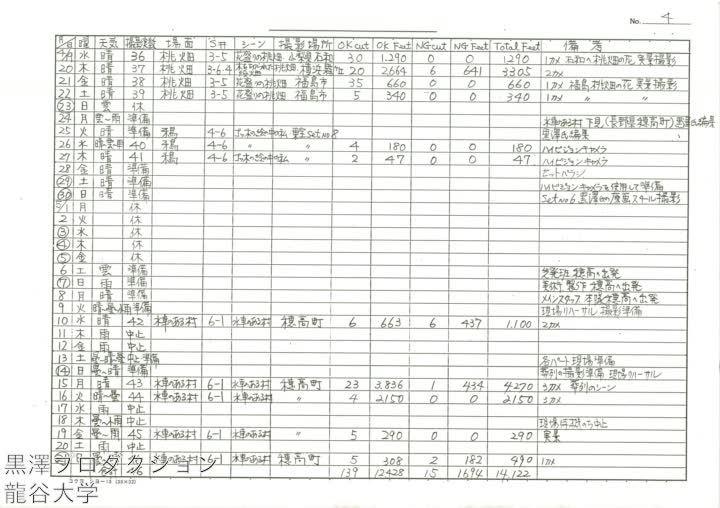 No. 4
月/日 曜 天気 撮影日数 場面 S# シーン 撮影場所 OK cut OK Feet NG cut NG Feet Total Feet 備考
4/19 水 晴 36 桃畑 3-5 花盛りの桃畑 山梨 石和 30 1.290 0 0 1290 1カメ 石和八代桃畑の花 実景撮影
20 木 晴 37 桃畑 3-6.4 横浜 20 2664 6 641 3305 2カメ
21 金 晴 38 桃畑 3-5 花盛りの桃畑 福島市 35 660 0 0 660 1カメ 福島 桃畑の花 実景撮影
22 土 晴 39 桃畑 3-5 花盛りの桃畑 福島市 5 340 0 0 340 1カメ 〃 〃
23 日 雲 休
24 月 雲〜雨 準備 水車のある村 下見(長野県穂高町)黒澤氏編集
25 火 晴 準備 鴉 4-6 ゴッホの絵の中の私 Set No 8 黒澤氏編集
26 水 晴雲雨 40 〃 4-6 〃 〃 4 180 0 0 180 ハイビジョンカメラ
27 木 晴 41 鴉 4-6 ゴッホの絵の中の私 〃 2 47 0 0 47 ハイビジョンカメラ
28 金 晴 準備 セットバラシ
29 土 晴 準備 ハイビジョンカメラを使用して準備
30 日 晴 準備 Set No 6 黒澤 原画スチール撮影
5/1 月 休
2 火 休
3 水 休
4 木 休
5 金 休
6 土 雲 準備 先発班 穂高へ出発
7 日 雨 準備 美術 製作 穂高へ出発
8 月 晴 準備 メインスタッフ 本隊 穂高へ出発
9 火 晴〜曇〜雨 準備 現場リハーサル 撮影準備
10 水 晴 42 水車のある村 6-1 水車のある村 穂高町 6 663 6 437 1.100 2カメ
11 木 雨 中止
12 金 雨 中止
13 土 曇〜晴 中止 準備 各パート現場準備
14 日 曇〜晴 準備 葬列の撮影準備 現場リハーサル
15 月 晴 43 水車のある村 6-1 水車のある村 穂高町 23 3.836 1 434 4.270 3カメ 葬列のシーン
16 火 晴〜曇 44 水車のある村 6-1 水車のある村 〃 4 2150 0 0 2150 3カメ
17 水 雨 中止
18 木 曇〜雨 中止 現場待機のち中止
19 金 曇〜雨 45 水車のある村 6-1 水車のある村 〃 5 290 0 0 290 実景
20 土 雨 中止
日 水車のある村 6-1 水車のある村 穂高町 5 308 2 182 490 1カメ
139 12428 15 1694 14,122
黒澤プロダクション
龍谷大学